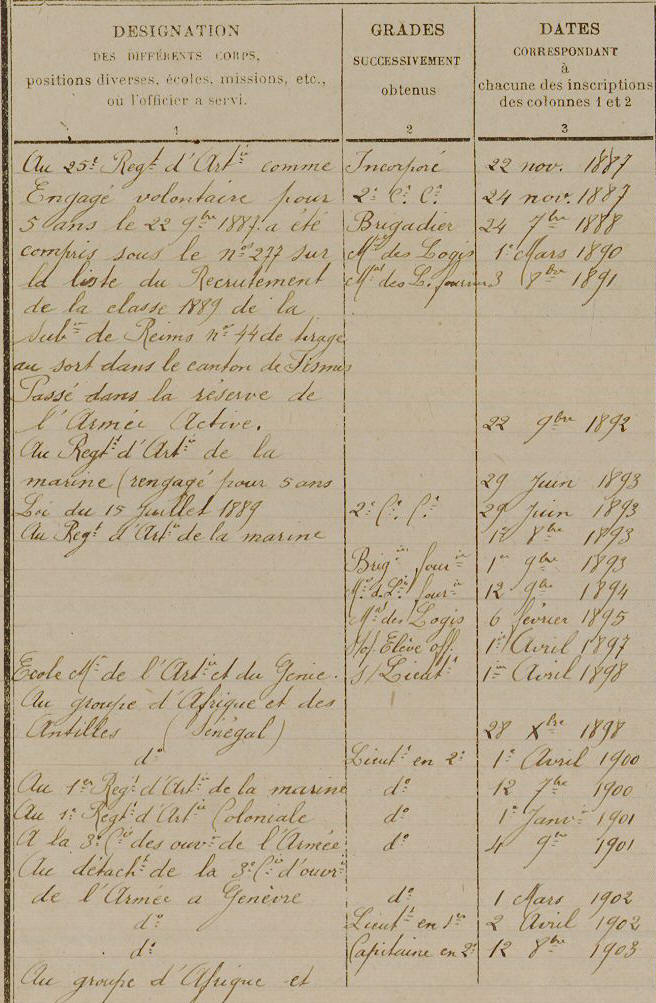 DESIGNATION
DES DIFFÉRENTS CORPS,
positions diverses, écoles, missions, etc.,
où l'officier a servi.
1
GRADES
SUCCESSIVEMENT
obtenus
2
DATES
CORRESPONDANT
à
chacune des inscriptions
des colonnes 1 et 2
3
Au 25e Regt d'Artie comme Incorporé 22 nov. 1887
Engagé volontaire pour 2e Cr Ct 24 nov. 1887
5 ans le 22 9bre 1887. a été Brigadier 24 7bre 1888
compris sous le no 277 sur Mal des Logis 1er Mars 1890
la liste du Recrutement Mal des L. fourrier 3 8bre 1891
de la classe 1889 de la
Subon de Reims no 44 de tirage
au sort dans le canton de Fismes
Passé dans la réserve de
l'Armée Active. 22 9bre 1892
Au Regt d'Artie de la
marine (rengagé pour 5 ans 29 Juin 1893
Loi du 15 Juillet 1889 2e Cr Ct 29 Juin 1893
Au Regt d'Artie de la marine 1er 8bre 1893
Brigier fourier 1er 9bre 1893
Mal d. Lis fourier 12 9bre 1894
Mal des Logis 6 février 1895
S/of. Elève off. 1er Avril 1897
Ecole Mre de l'Artie et du Génie. S/Lieutt 1er Avril 1898
Au groupe d'Afrique et des
Antilles (Sénégal) 28 Xbre 1898
do Lieutt en 2e 1er Avril 1900
Au 1er Regt d'Artie de la marine do 12 7bre 1900
Au 1er Regt d'Artie Coloniale do 1er Janvr 1901
A la 3e Cie des ouvrs de l'Armée do 4 9re 1901
Au détacht de la 3e Cie d'ouvrs
de l'Armée a Genèvre do 1 Mars 1902
do Lieutt en 1er 2 Avril 1902
do Capitaine en 2e 12 8bre 1903
Au groupe d'Afrique et